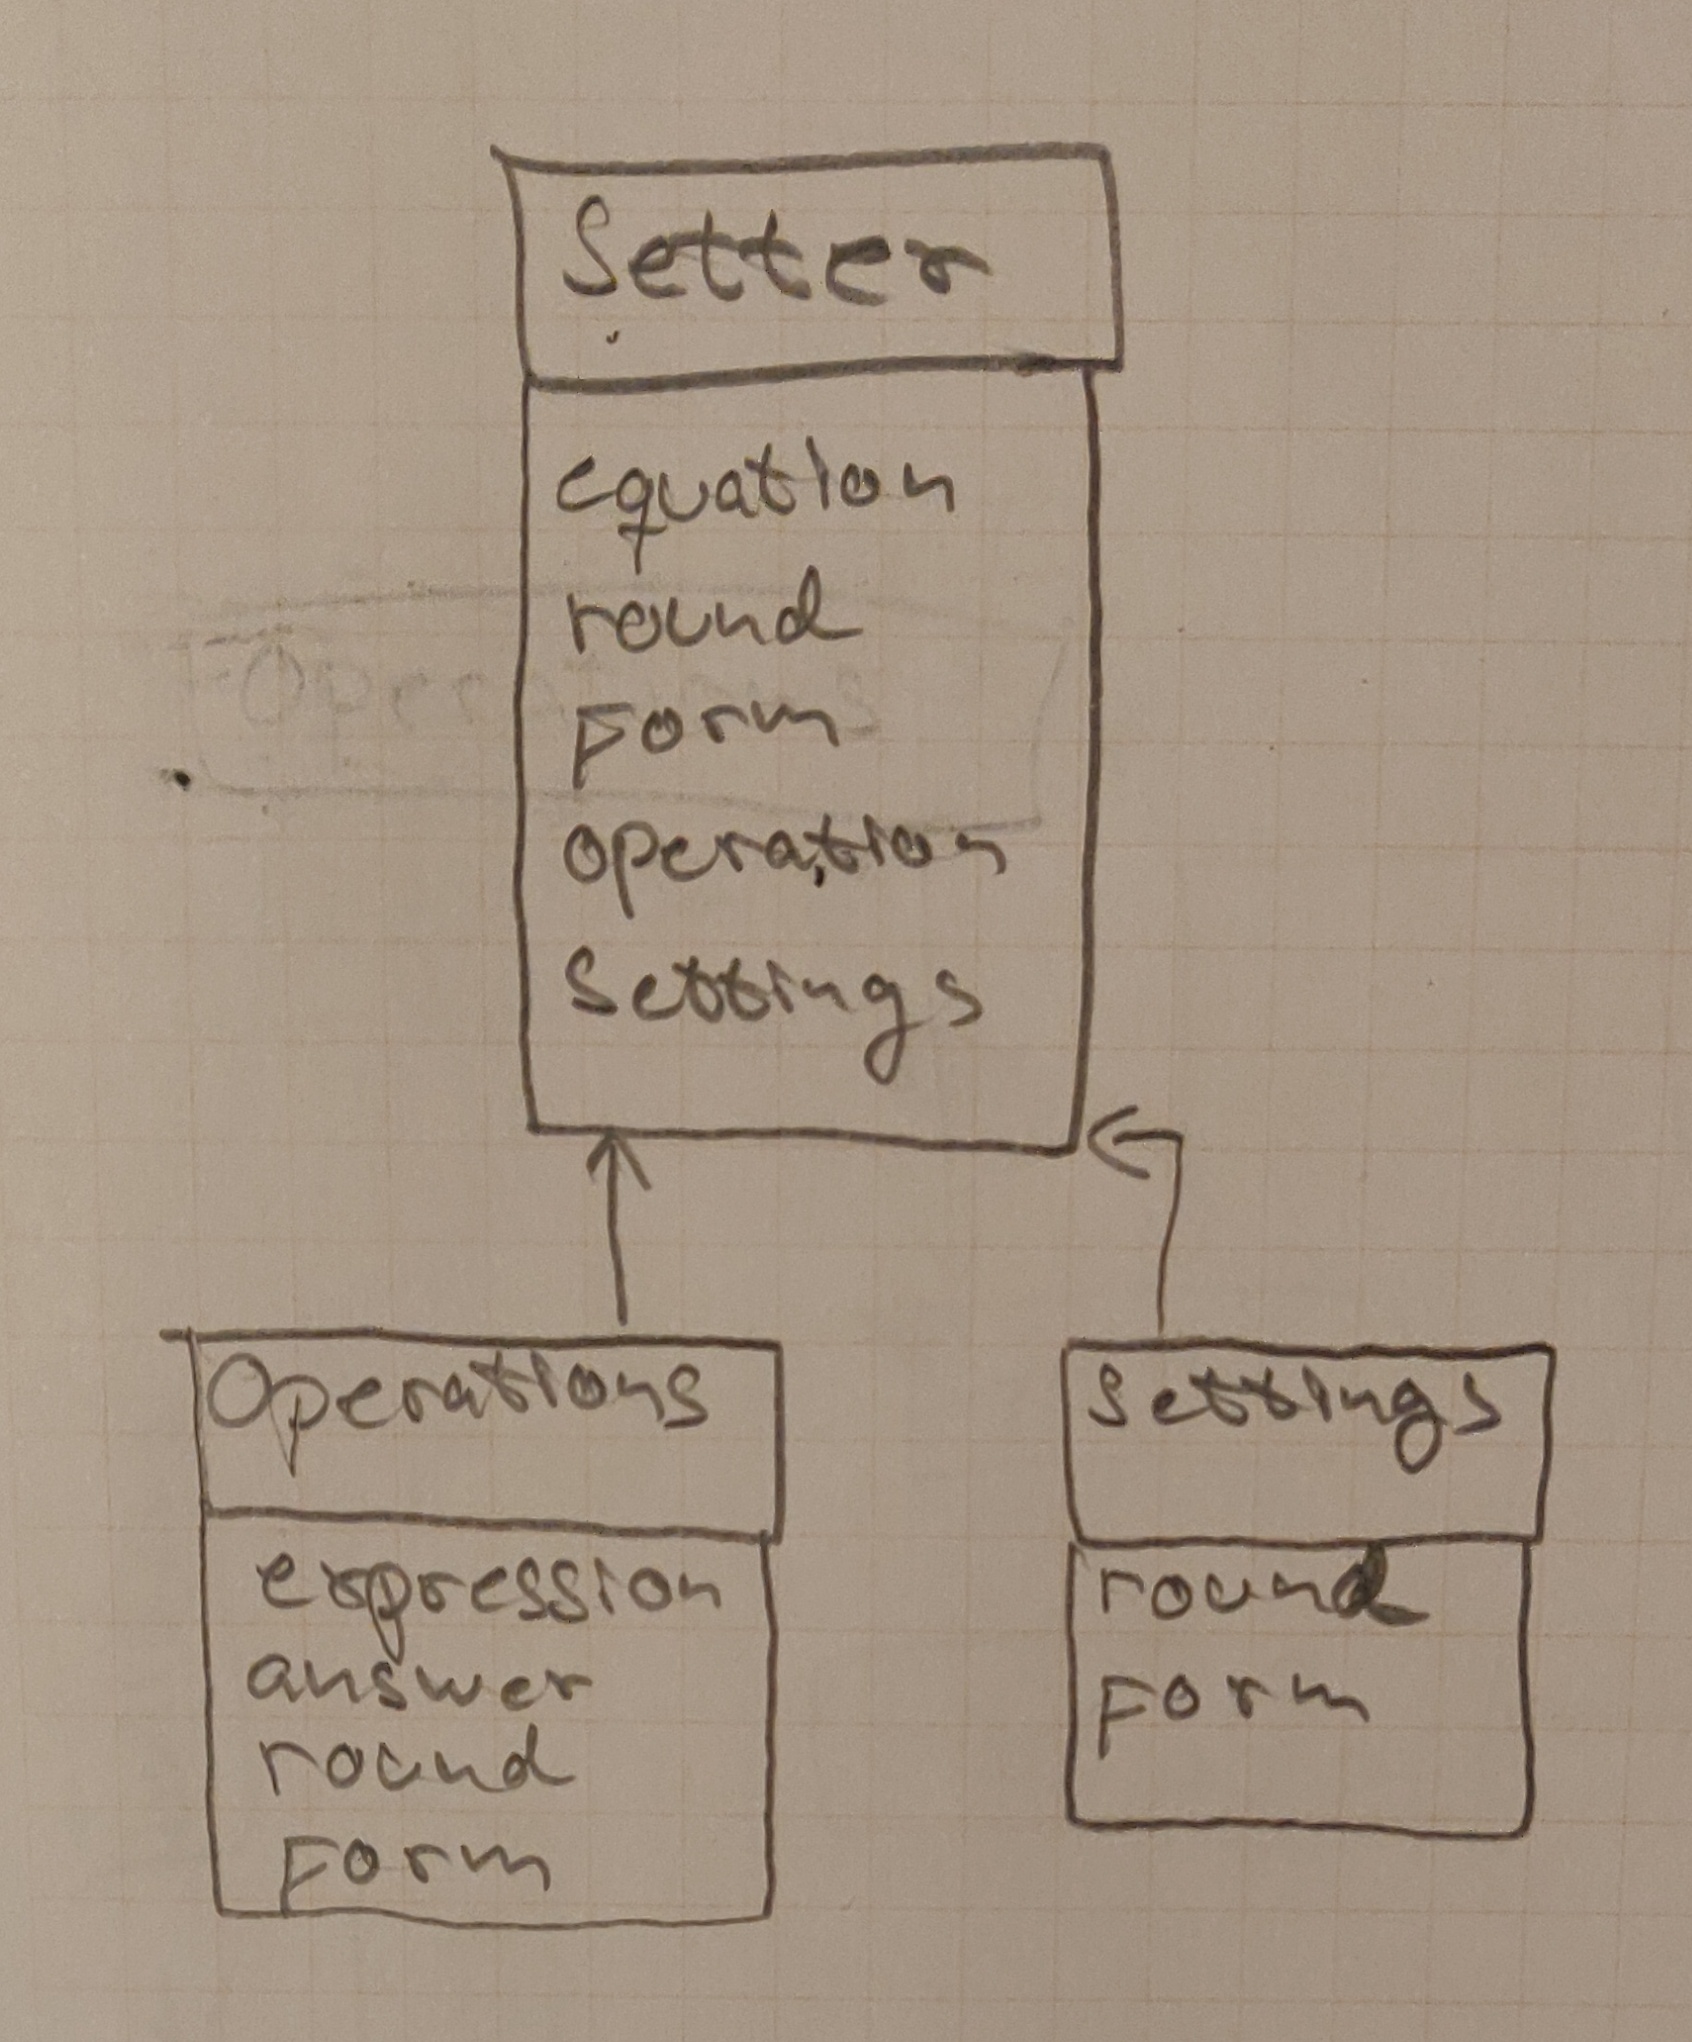 Setter
equation
round
Form
operation
Settings
Operations
expression
answer
round
Form
Settings
round
Form